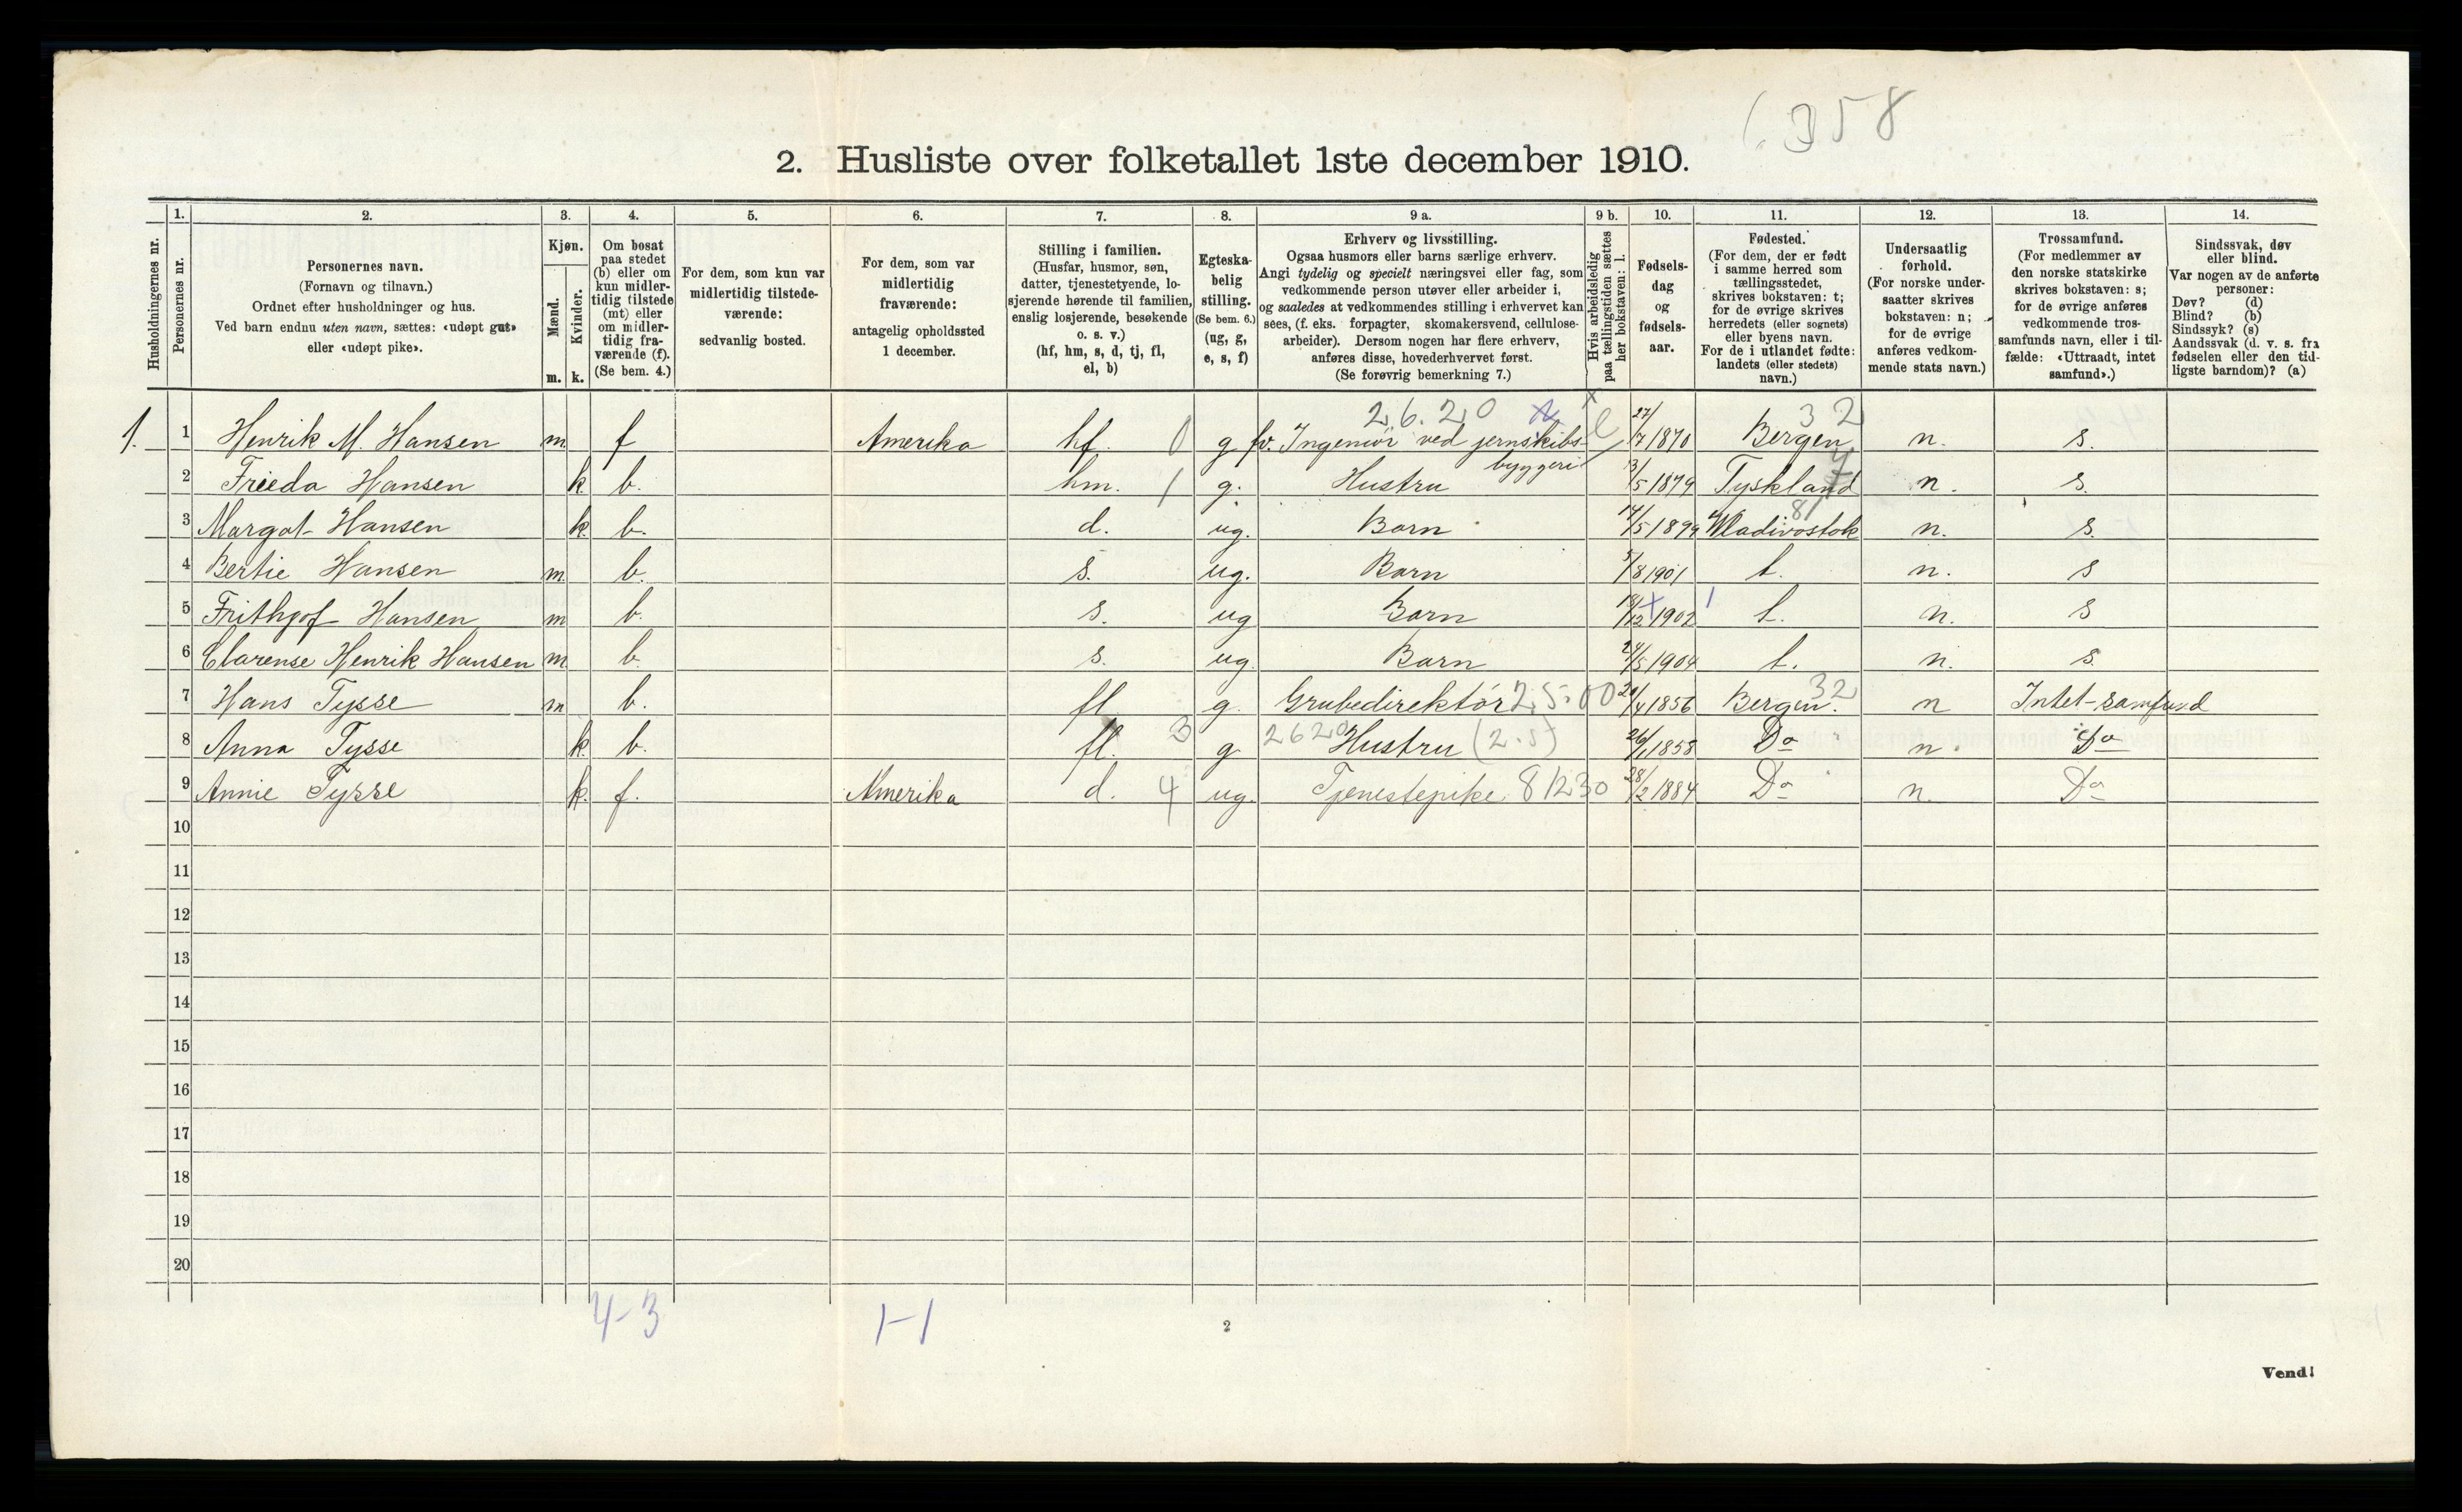 (358
2. Husliste over folketallet 1ste december 1910.
Husholdningernes nr.
1.
Personernes nr.
2.
Personernes navn.
(Fornavn og tilnavn.)
Ordnet efter husholdninger og hus.
Ved barn endnu uten navn, sættes: «udøpt gut»
eller «udøpt pike».
3.
Kjøn.
Mænd.
Kvinder.
m. k.
4.
Om bosat
paa stedet
(b) eller om
kun midler-
tidig tilstede
(mt) eller
om midler-
tidig fra-
værende (f).
(Se bem. 4.)
5.
For dem, som kun var
midlertidig tilstede-
værende:
sedvanlig bosted.
6.
For dem, som var
midlertidig
fraværende:
antagelig opholdssted
1 december.
7.
Stilling i familien.
(Husfar, husmor, søn,
datter, tjenestetyende, lo-
sjerende hørende til familien,
enslig losjerende, besøkende
o. s. v.)
(hf, hm, s, d, tj, fl,
el, b)
8.
Egteska-
belig
stilling.
(Se bem. 6.)
(ug, g,
e, s, f)
9 a.
Erhverv og livsstilling.
Ogsaa husmors eller barns særlige erhverv.
Angi tydelig og specielt næringsvei eller fag, som
vedkommende person utøver eller arbeider i,
og saaledes at vedkommendes stilling i erhvervet kan
sees, (f. eks. forpagter, skomakersvend, cellulose-
arbeider). Dersom nogen har flere erhverv,
anføres disse, hovederhvervet først.
(Se forøvrig bemerkning 7.)
9 b.
Hvis arbeidsledig
paa tællingstiden sættes
her bokstaven: l.
10.
Fødsels-
dag
og
fødsels-
aar.
11.
Fødested.
(For dem, der er født
i samme herred som
tællingsstedet,
skrives bokstaven: t;
for de øvrige skrives
herredets (eller sognets)
eller byens navn.
For de i utlandet fødte:
landets (eller stedets)
navn.)
12.
Undersaatlig
forhold.
(For norske under-
saatter skrives
bokstaven: n;
for de øvrige
anføres vedkom-
mende stats navn.)
13.
Trossamfund.
(For medlemmer av
den norske statskirke
skrives bokstaven: s;
for de øvrige anføres
vedkommende tros-
samfunds navn, eller i til-
fælde: «Uttraadt, intet
samfund».)
14.
Sindssvak, døv
eller blind.
Var nogen av de anførte
personer:
Døv? (d)
Blind? (b)
Sindssyk? (s)
Aandssvak (d. v. s. fra
fødselen eller den tid-
ligste barndom)? (a)
2.6.20 x 32
1. 1 Henrik M. Hansen m f Amerika hf. 0 g fv. Ingeniør ved jernskibs- l 27/7 1870 Bergen n. s.
byggeri
2 Frieda Hansen k b. hm. 1 g. Hustru 13/5 1879 Tyskland n. s.
81
3 Margot Hansen k. b. d. ug. Barn 14/5 1899 Wladivostok n. s.
4 Bertie Hansen m. b. s. ug. Barn 5/8 1901 t. n. s
5 Frithjof Hansen m b. s. ug Barn 18/12 1902 t. n. s
6 Clarense Henrik Hansen m. b. s. ug. Barn 24/5 1904 t. n. s.
7 Hans Tysse m b. fl g. Grubedirektör 2,5.00 20/4 1856 Bergen. 32 n Intet-samfund
8 Anna Tysse k. b. fl. 3 g 2620 Hustru (2.5) 26/1 1858 Do n. Do
9 Annie Tysse k. f. Amerika d. 4 ug. Tjenestepike 81230 28/2 1884 Do n. Do
10
11
12
13
14
15
16
17
18
19
20
4-3 1-1
2
Vend!